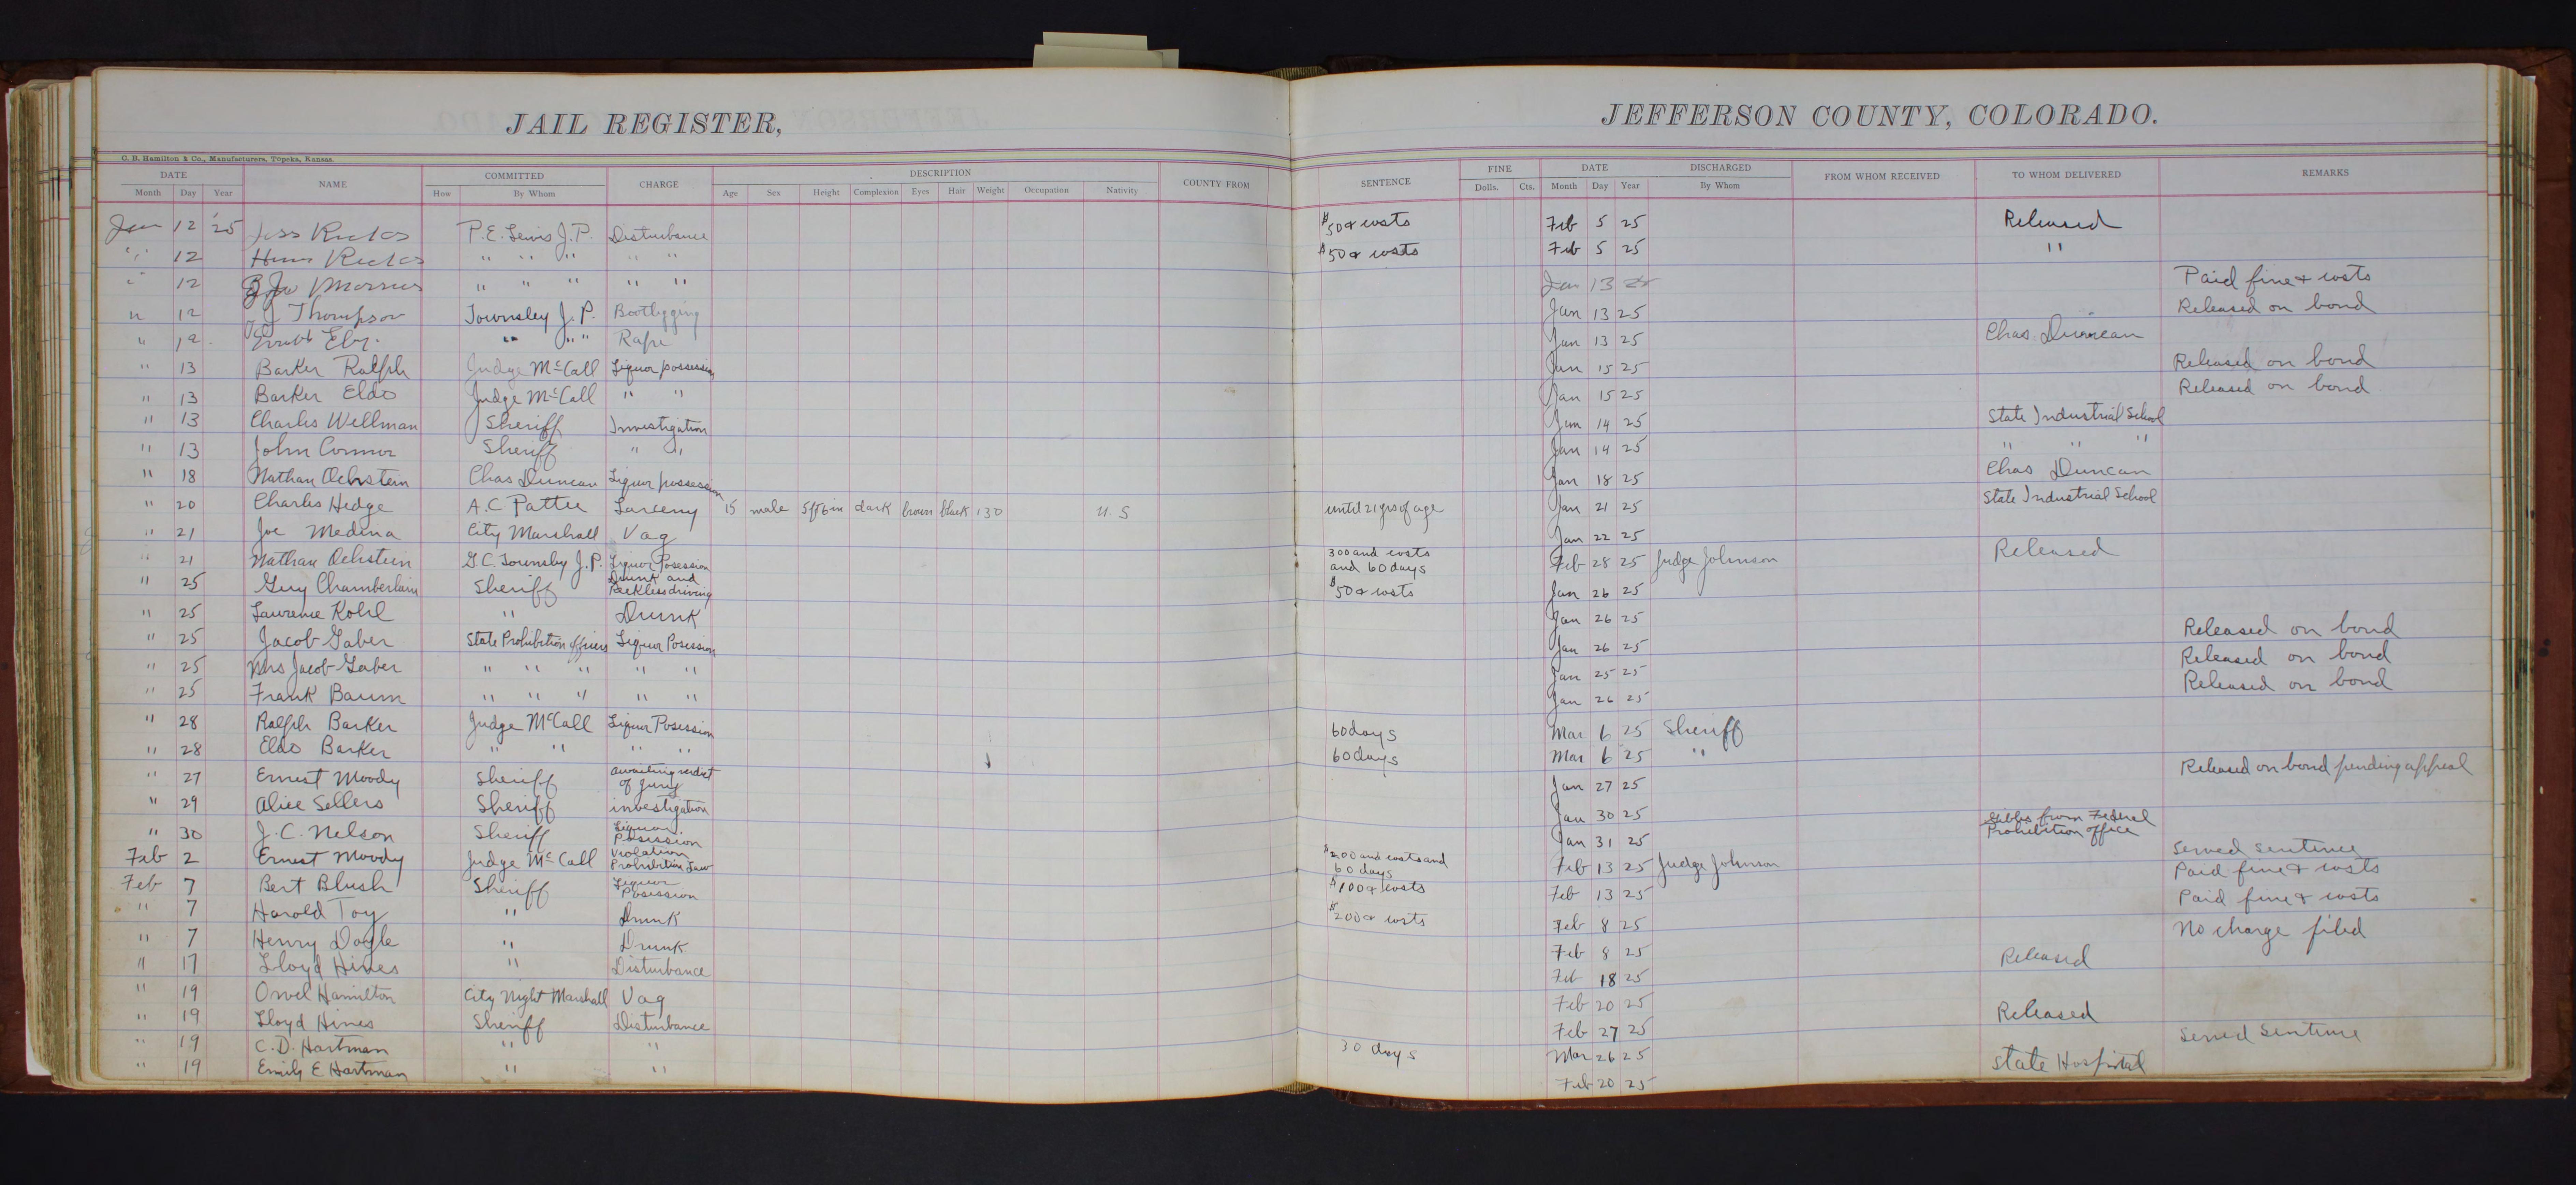 JAIL REGISTER, JEFFERSON COUNTY, COLORADO.
C. B. Hamilton & Co., Manufacturers, Topeka, Kansas.
DATE NAME COMMITTED CHARGE DESCRIPTION COUNTY FROM SENTENCE FINE DATE DISCHARGED FROM WHOM RECEIVED TO WHOM DELIVERED REMARKS
Month Day Year How By Whom Age Sex Height Complexion Eyes Hair Weight Occupation Nativity Dolls. Cts. Month Day Year By Whom
Jan 12 '25 Jess Ricks P.E. Lewis J.P. Disturbance $50 & costs Feb 5 25 Released
" 12 Ricks " " " " " $50 & costs Feb 5 25 "
" 12 Morris " " " " " Jan 13 25 Paid fine & costs
" 12 Thompson Townsley J.P. Bootlegging Jan 13 25 Released on bond
" 12 Eby " " " Rape Jan 13 25 Chas. Duncan
" 13 Barker Ralph Judge McCall Liquor possession Jan 15 25 Released on bond
" 13 Barker Eldo Judge McCall " " Jan 15 25 Released on bond
" 13 Charles Wellman Sheriff Investigation Jan 14 25 State Industrial School
" 13 John Connor Sheriff " " Jan 14 25 " " "
" 18 Nathan Ochstein Chas Duncan Liquor possession Jan 18 25 Chas Duncan
" 20 Charles Hedge A.C. Pattee Larceny 15 male 5ft6in dark brown black 130 U.S until 21 yrs of age Jan 21 25 State Industrial School
" 21 Joe Medina City Marshall Vag Jan 22 25
" 21 Nathan Ochstein G.C. Townsley J.P. Liquor Posession 300 and costs and 60 days Feb 28 25 Judge Johnson Released
" 25 Guy Chamberlain Sheriff Drunk and Reckless driving $50 & costs Jan 26 25
" 25 Lawrence Kohl " Drunk Jan 26 25
" 25 Jacob Gaber State Prohibition officers Liquor Posession Jan 26 25 Released on bond
" 25 Mrs Jacob Gaber " " " " " Jan 25 25 Released on bond
" 25 Frank Baum " " " " " Jan 26 25 Released on bond
" 28 Ralph Barker Judge McCall Liquor Posession 60 days Mar 6 25 Sheriff
" 28 Eldo Barker " " " " 60 days Mar 6 25 "
" 27 Ernest Moody Sheriff awaiting verdict of jury Jan 27 25 Released on bond pending appeal
" 29 Alice Sellers Sheriff investigation Jan 30 25
" 30 J.C. Nelson Sheriff Liquor Posession Jan 31 25 from Federal Prohibition office
Feb 2 Ernest Moody Judge McCall Violation Prohibition Law $200 and costs and 60 days Feb 13 25 Judge Johnson Served sentence
Feb 7 Bert Blush Sheriff Liquor Posession $100 & costs Feb 13 25 Paid fine & costs
" 7 Harold Toy " Drunk $200 & costs Feb 8 25 Paid fine & costs
" 7 Henry Doyle " Drunk Feb 8 25 No charge filed
" 17 Lloyd Hines " Disturbance Feb 18 25 Released
" 19 Orvel Hamilton City Night Marshall Vag Feb 20 25
" 19 Lloyd Hines Sheriff Disturbance Feb 27 25 Released
" 19 C.D. Hartman " " 30 days Mar 26 25 Served Sentence
" 19 Emily E Hartman " " Feb 20 25 State Hospital